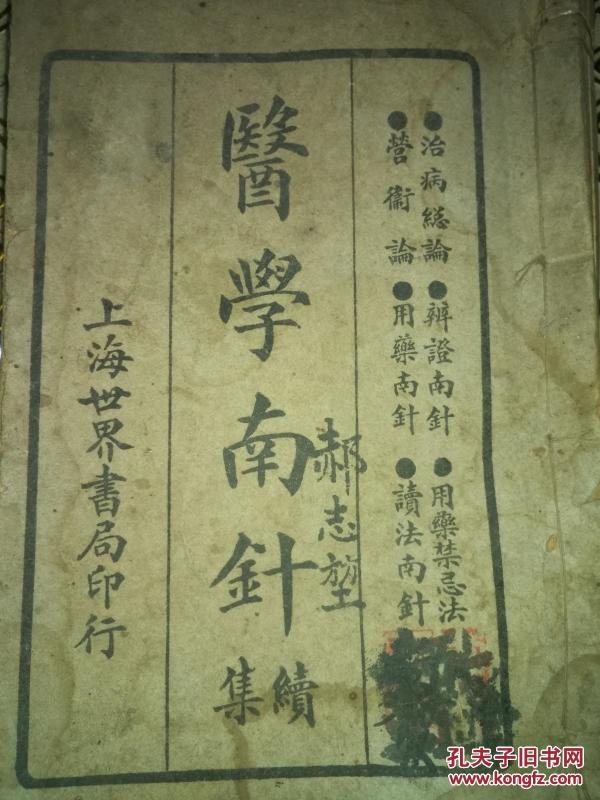 ●治病總論●辨證南針●用藥禁忌法
●營衞論●用藥南針●讀法南針
醫學南針
續集
郝志堃
上海世界書局印行
孔夫子旧书网
www.kongfz.com